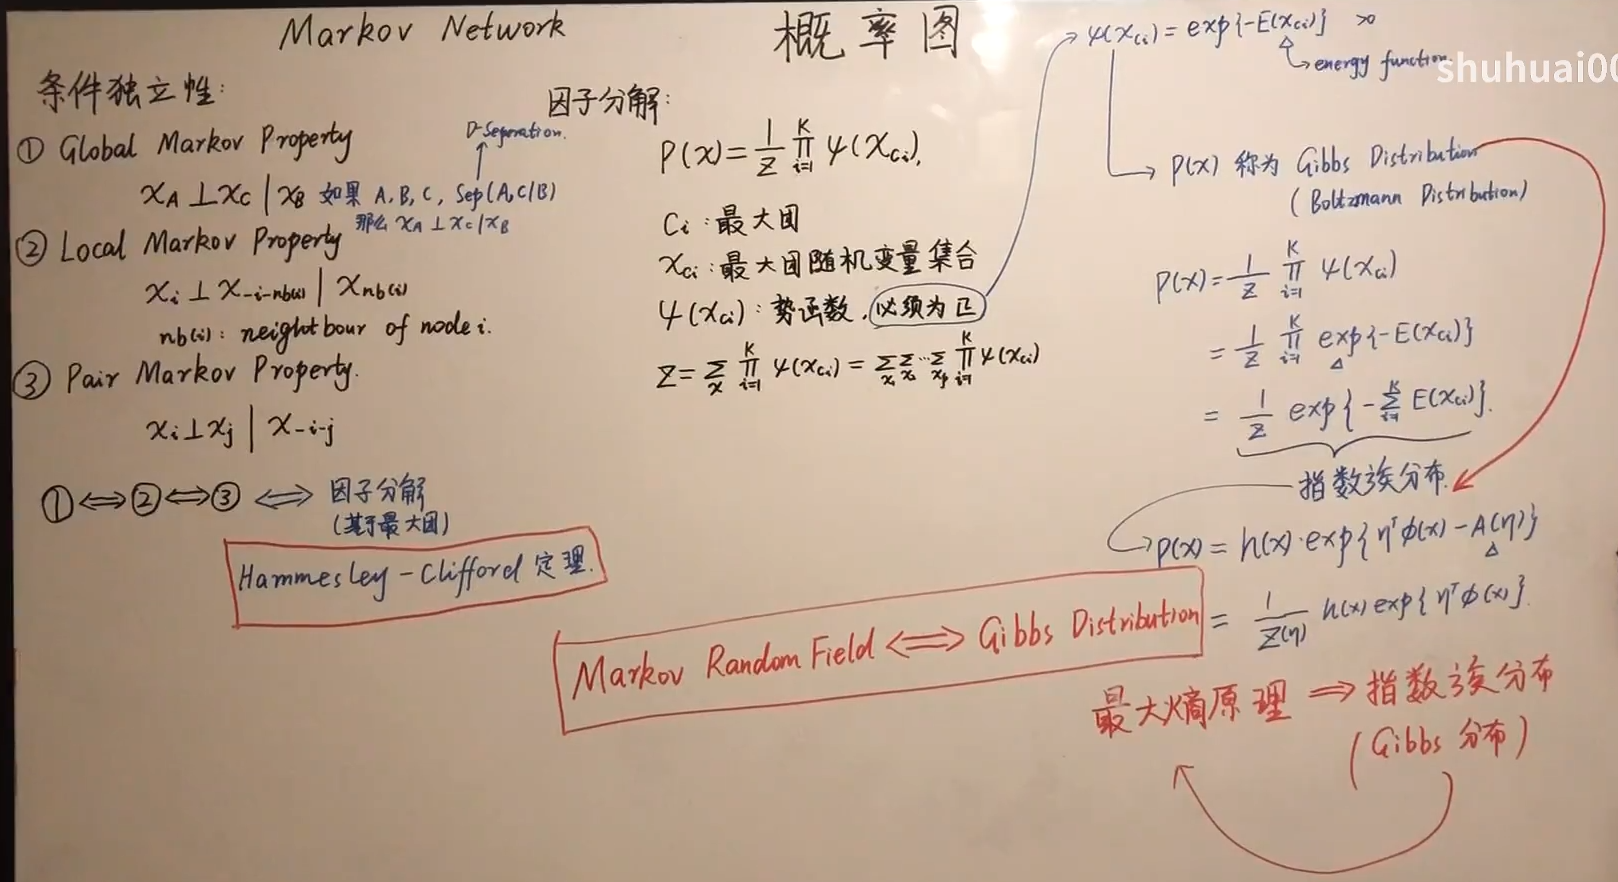 Markov Network
概率图
条件独立性:
① Global Markov Property
D-Separation.
x_A ⊥ x_C | x_B 如果 A, B, C, Sep(A, C|B)
那么 x_A ⊥ x_C | x_B
② Local Markov Property
x_i ⊥ x_{-i-nb(i)} | x_{nb(i)}
nb(i): neightbour of node i.
③ Pair Markov Property.
x_i ⊥ x_j | x_{-i-j}
① ⟺ ② ⟺ ③ ⟺ 因子分解
(基于最大团)
Hammesley-Clifford 定理.
因子分解:
P(x) = 1/Z ∏_{i=1}^{K} ψ(x_{Ci}),
C_i: 最大团
x_{Ci}: 最大团随机变量集合
ψ(x_{Ci}): 势函数, 必须为正
Z = ∑_x ∏_{i=1}^{K} ψ(x_{Ci}) = ∑_{x_1} ∑_{x_2} ... ∑_{x_p} ∏_{i=1}^{K} ψ(x_{Ci})
ψ(x_{Ci}) = exp{-E(x_{Ci})} >0
energy function
shuhuai00
P(x) 称为 Gibbs Distribution
(Boltzmann Distribution)
P(x) = 1/Z ∏_{i=1}^{K} ψ(x_{Ci})
= 1/Z ∏_{i=1}^{K} exp{-E(x_{Ci})}
= 1/Z exp{-∑_{i=1}^{K} E(x_{Ci})}.
指数族分布.
P(x) = h(x)·exp{η^T φ(x) - A(η)}
= 1/Z(η) h(x) exp{η^T φ(x)}.
Markov Random Field ⟺ Gibbs Distribution
最大熵原理 ⟹ 指数族分布
(Gibbs 分布)